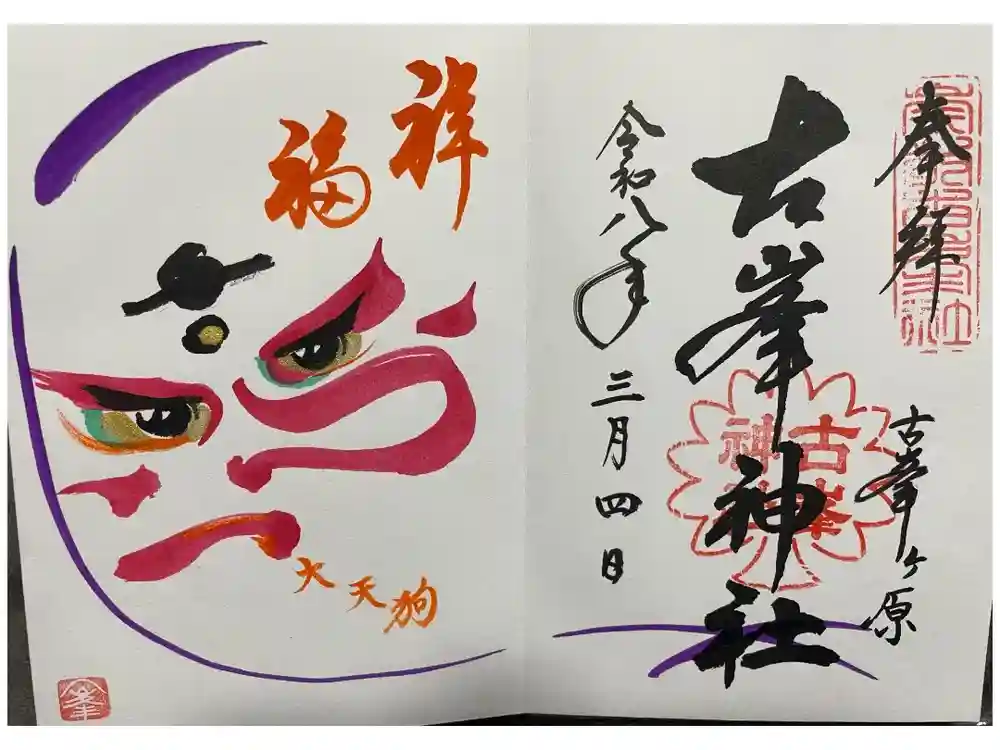 奉拝
古峯ヶ原
古峯神社
古峯神社
令和八年
三月四日
祥福
大天狗
峯